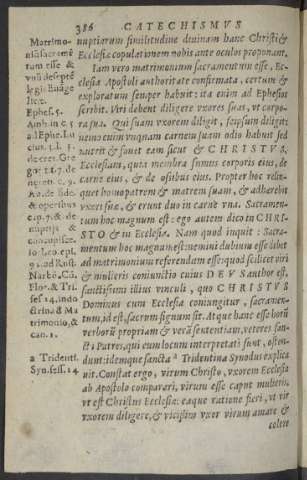 386 CATECHISMVS
nuptiarum similitudine diuinam hanc Christi &
Ecclesiæ copulationem nobis ante oculos proponant.
Iam vero matrimonium sacramentum esse, Ec-
clesia Apostoli authoritate confirmata, certum &
exploratum semper habuit: ita enim ad Ephesios
scribit. Viri debent diligere vxores suas, vt corpo-
ra sua. Qui suam vxorem diligit, seipsum diligit:
nemo enim vnquam carnem suam odio habuit sed
nutrit & fouet eam sicut & CHRISTVS,
Ecclesiam, quia membra sumus corporis eius, de
carne eius, & de ossibus eius. Propter hoc relin-
quet homo patrem & matrem suam, & adhærebit
vxori suæ, & erunt duo in carne vna. Sacramen-
tum hoc magnum est: ego autem dico in CHRI-
STO & in Ecclesia. Nam quod inquit: Sacra-
mentum hoc magnum est: nemini dubium esse debet
ad matrimonium referendum esse: quod scilicet viri
& mulieris coniunctio cuius DEVS author est,
sanctissimi illius vinculi, quo CHRISTVS
Dominus cum Ecclesia coniungitur, sacramen-
tum, id est, sacrum signum sit. Atque hanc esse horū
verborū propriam & verā sententiam, veteres san-
cti Patres, qui eum locum interpretati sunt, osten-
dunt: idemque sancta a Tridentina Synodus explica
uit. Constat ergo, virum Christo, vxorem Ecclesiæ
ab Apostolo comparari, virum esse caput mulieris
vt est Christus Ecclesiæ: eaque ratione fieri, vt vir
vxorem diligere, & vicissim vxor virum amare &
colere
Matrimo-
nium sacramē
tum esse &
vnū de septē
legis Euāge
licæ.
Ephes. 5.
a Trident.
Syn. sess. 24